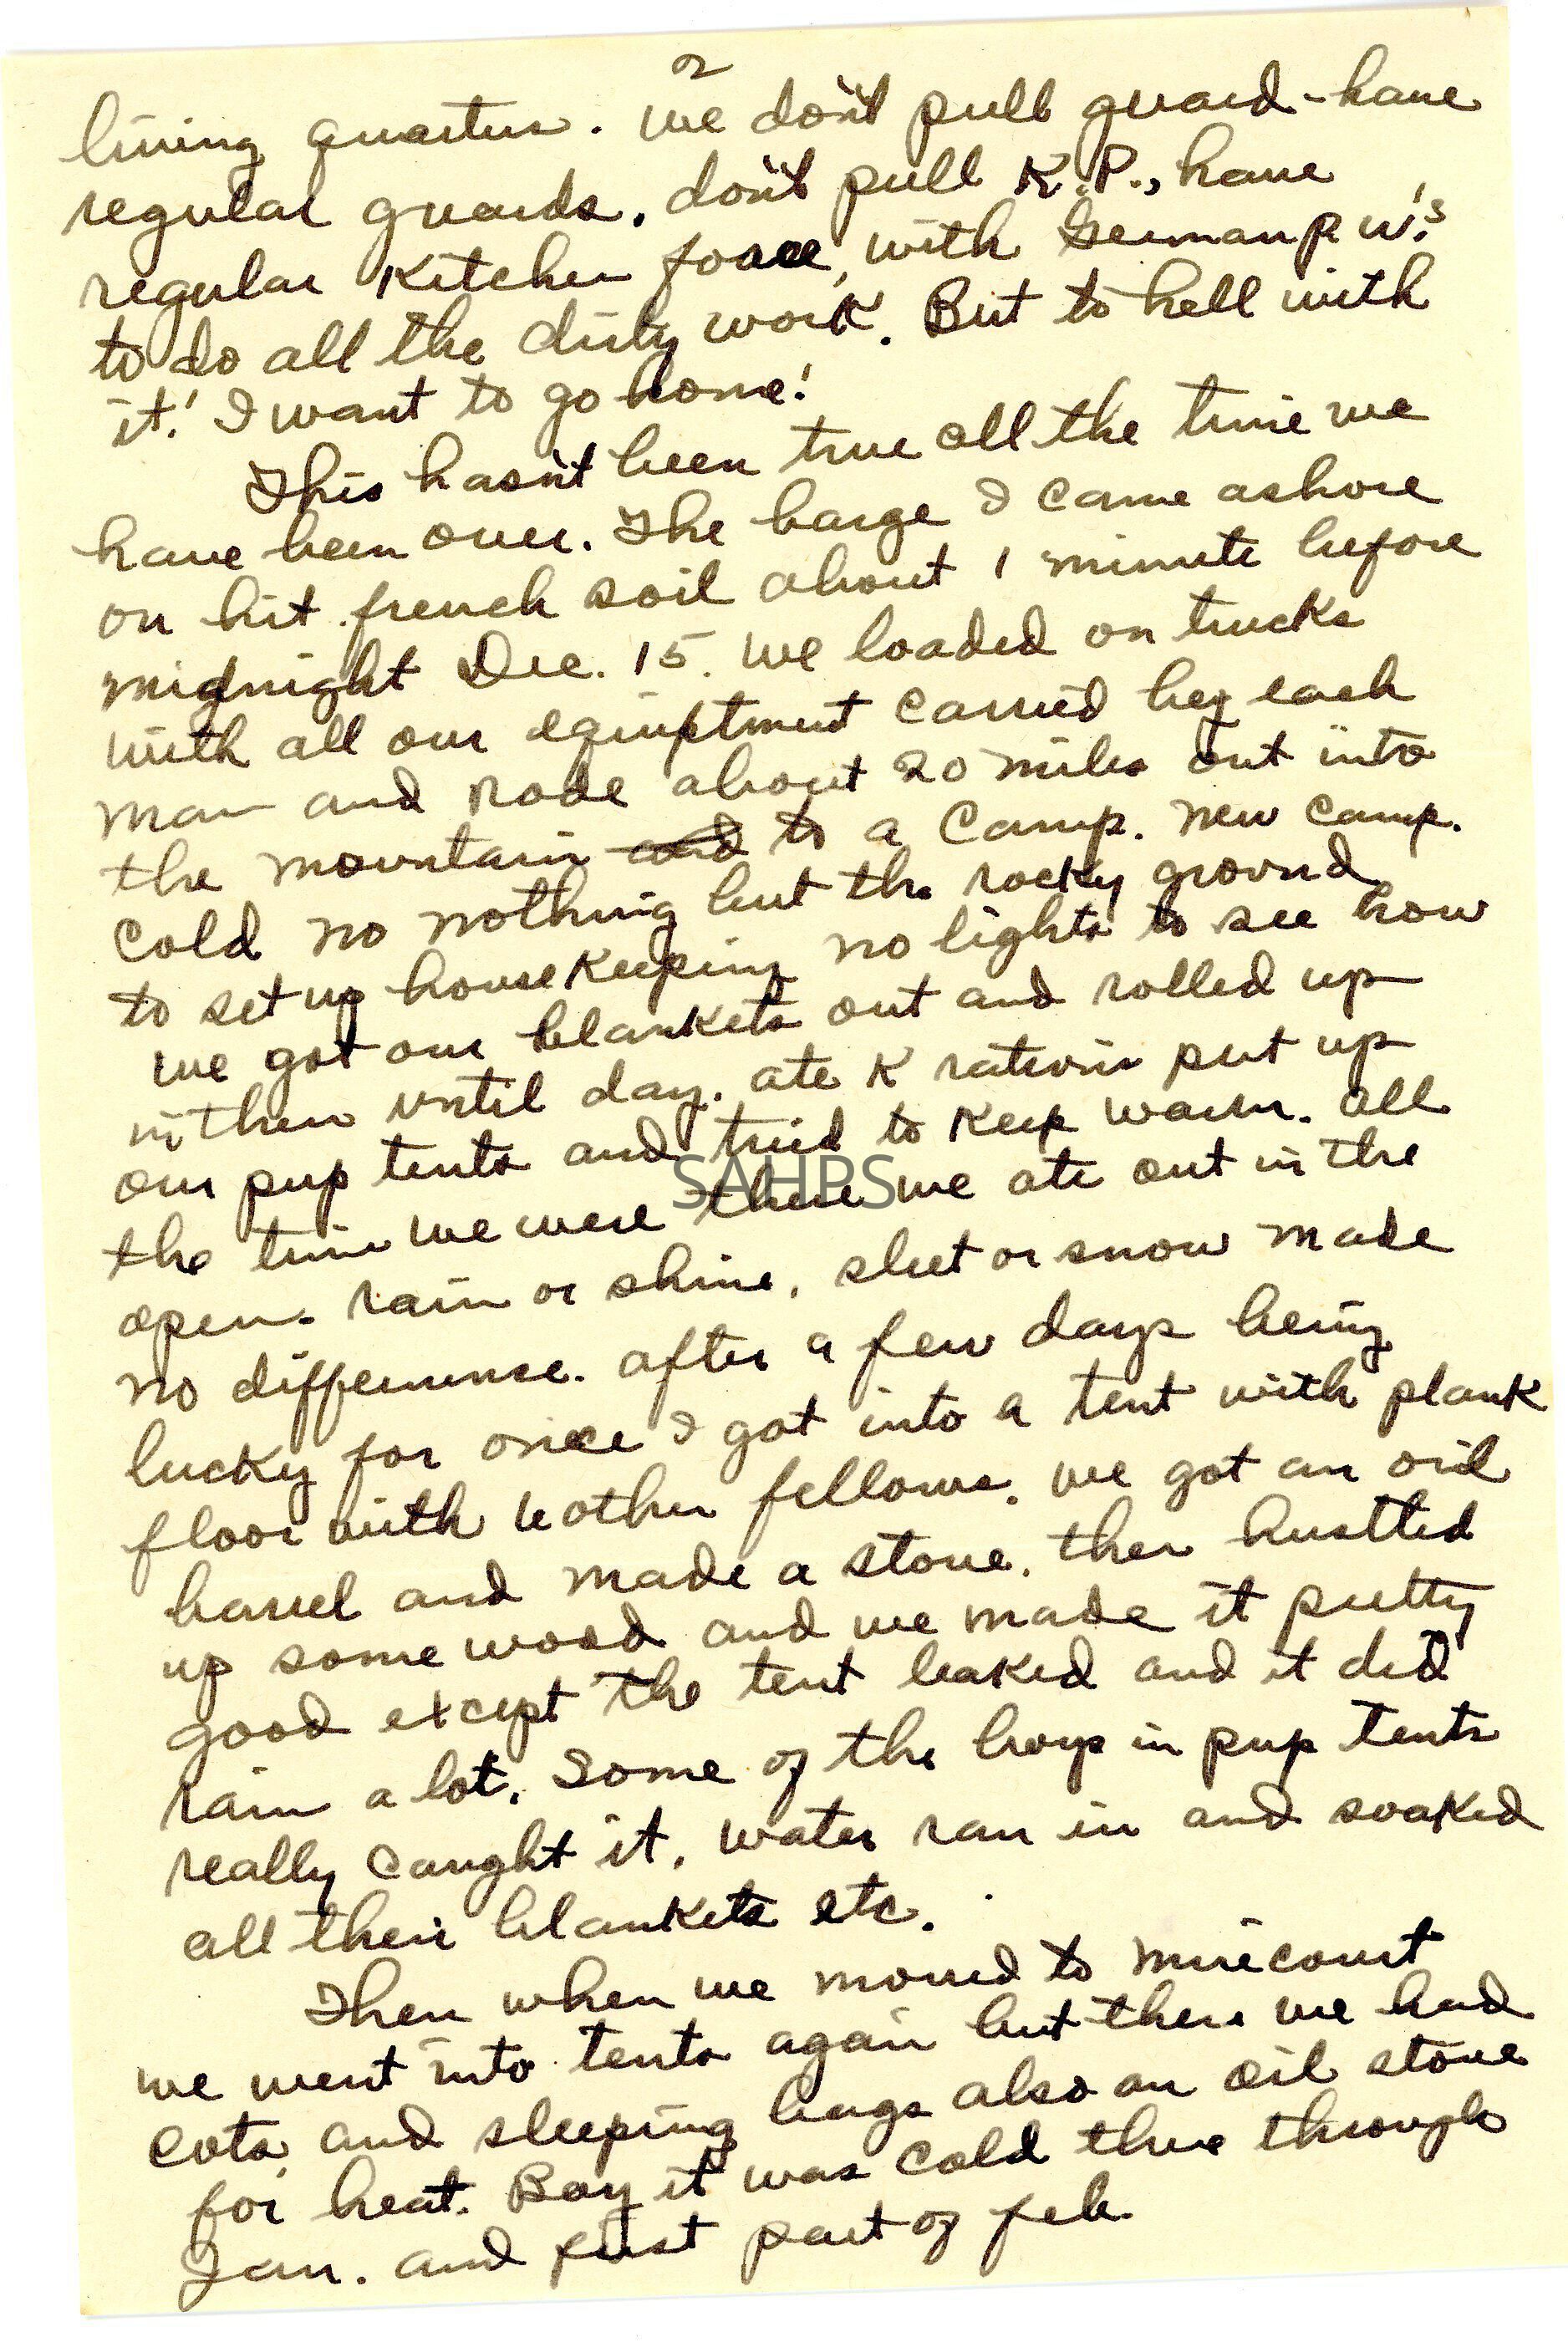 2
living quarters. We don't pull guard - have
regular guards. don't pull K.P., have
regular Kitchen force, with German P.W.'s
to do all the dirty work. But to hell with
it! I want to go home!
This hasn't been true all the time we
have been over. The barge I came ashore
on hit french soil about 1 minute before
midnight Dec. 15. We loaded on trucks
with all our equiptment carried by each
man and rode about 20 miles out into
the mountain and to a camp. new camp.
Cold no nothing but the rocky ground
to set up housekeeping no lights to see how
we got our blankets out and rolled up
in them until day. ate K ration put up
our pup tents and tried to keep warm. all
SAHPS
the time we were there we ate out in the
open. rain or shine, sleet or snow made
no differennce. after a few days being
lucky for once I got into a tent with plank
floor with 6 other fellows. we got an oil
barrel and made a stove. then hustled
up some wood and we made it pretty
good except the tent leaked and it did
rain a lot. Some of the boys in pup tents
really caught it, water ran in and soaked
all their blankets etc.
Then when we moved to Mirecourt
we went into tents again but there we had
cots and sleeping bags also an oil stove
for heat. Boy it was cold there through
Jan. and first part of feb.